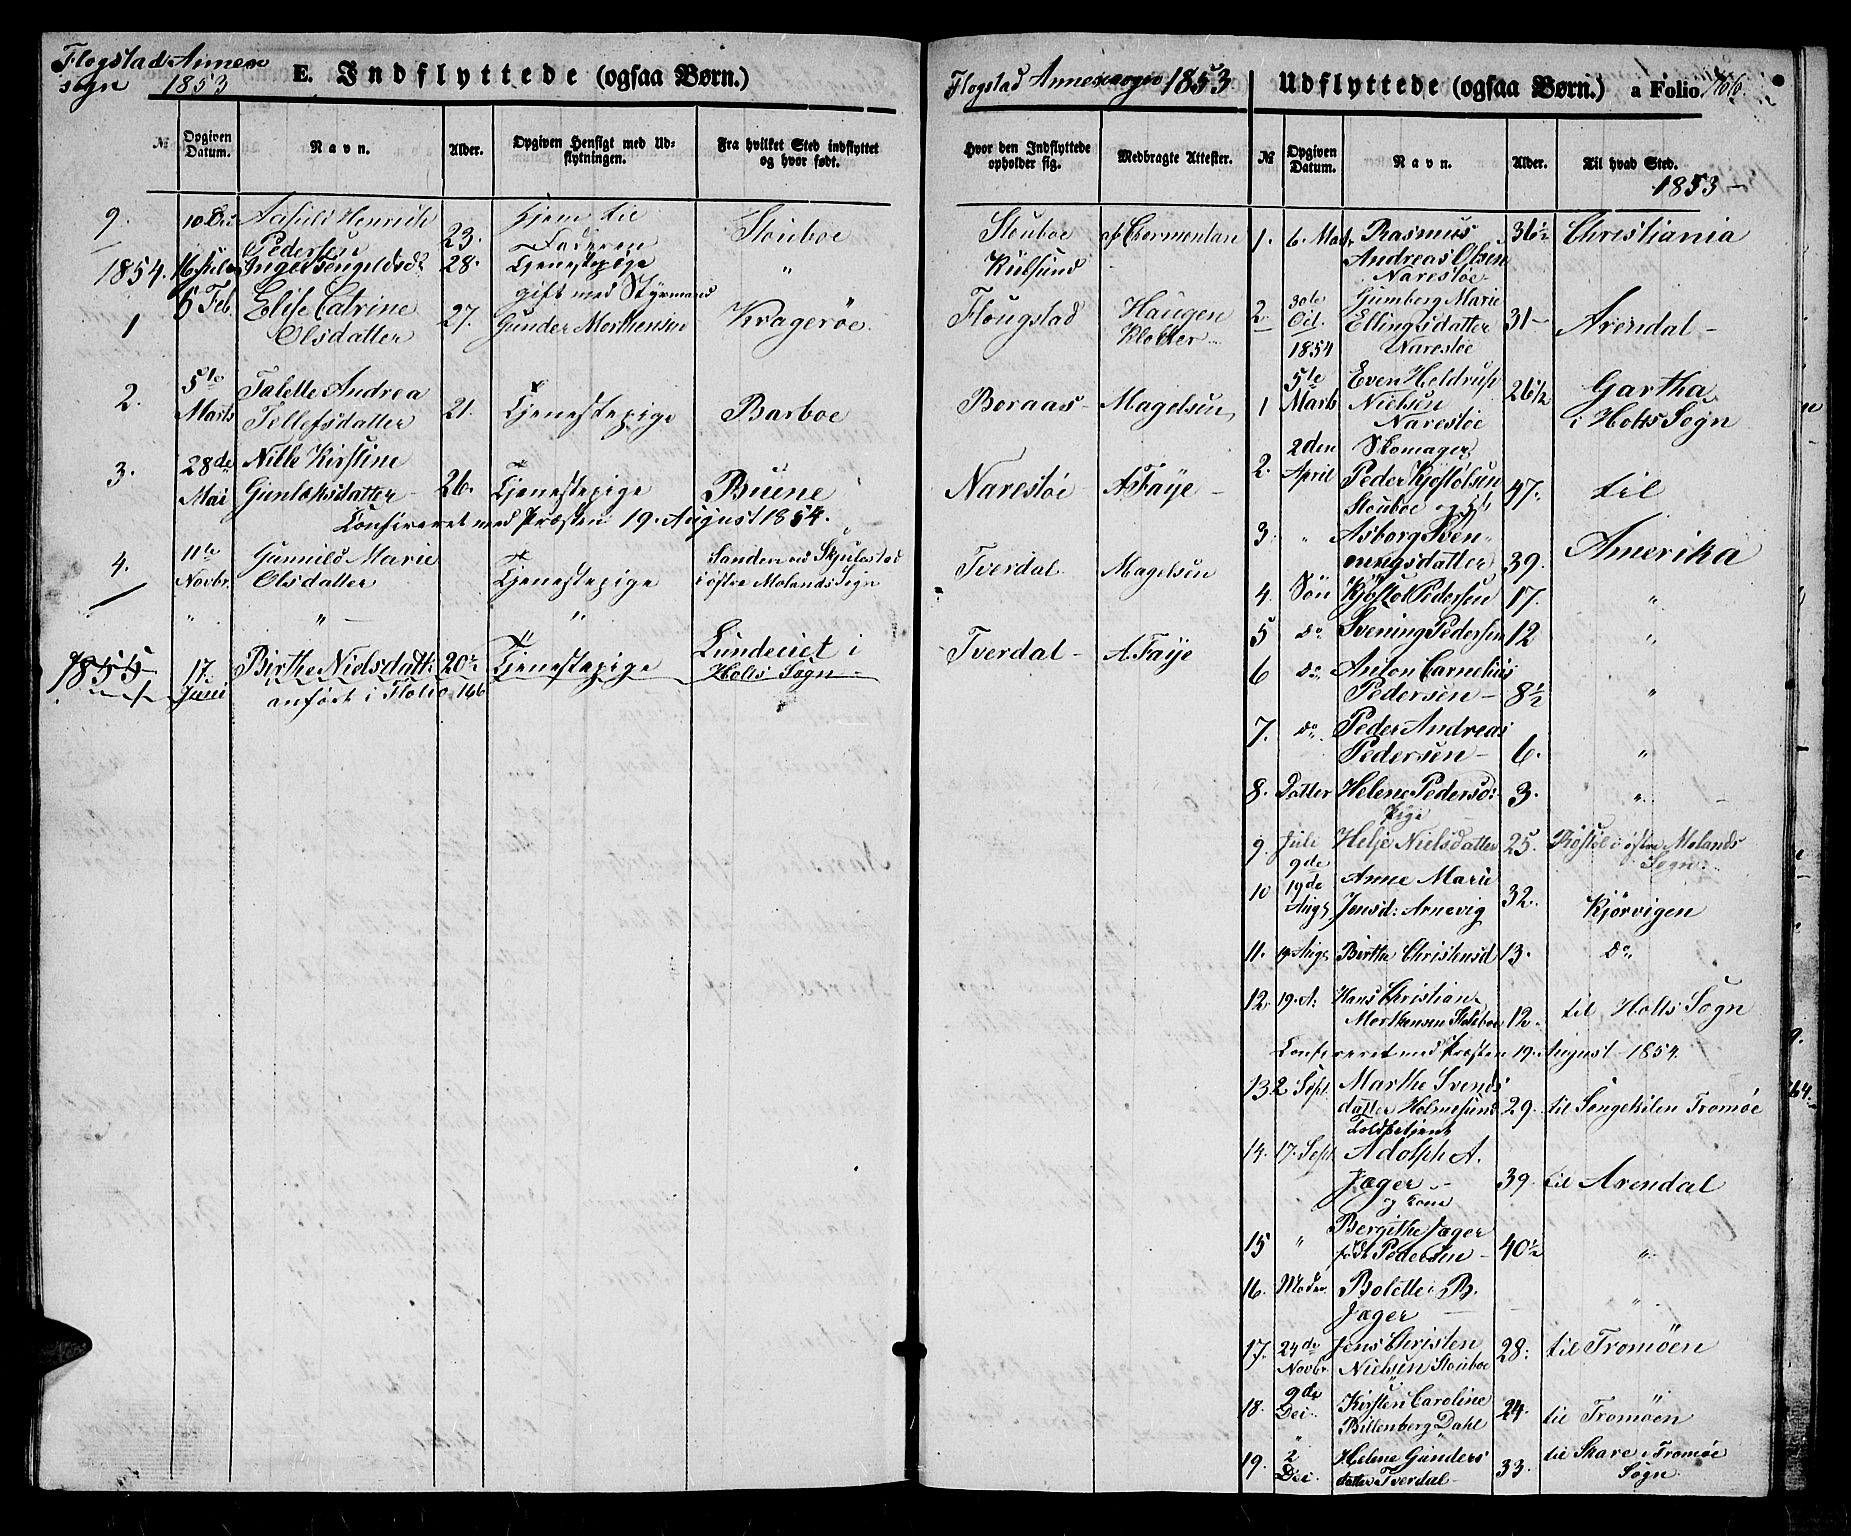 Flogstad Annex
sogn 1853
E. Indflyttede (ogsaa Børn.)
№ Opgiven Datum. Navn. Alder. Opgiven Hensigt med Ud-flytningen. Fra hvilket Sted indflyttet og hvor født.
9. Aasild Henriette Pedersen 23. Hjem til Faderen Stouboe
1854. Inger Tengelsd? 28. Tjenestepige "
1 6 Feb. Elise Catrine Olsdatter 27. gift med Styrmand Gunder Mortensen Kragerøe.
2. 5te Marts Talette Andrea Tellefsdatter 21. Tjenestepige Barboe
3. 28de Mai Nille Kirstine Gunlaksdatter 26. Tjenestepige Buene
Confereret med Præsten 19. August 1854.
4. 11te Novbr. Gunnild Marie Olsdatter Tjenestepige Sanden ved Skjulestad i østre Molands Sogn
" " "
1855 17. Juni Birthe Nielsdatt: 20½ Tjenestepige Lunderiet i Holts Sogn
anført i Folio 166
Flogstad Annexsogn 1853
Hvor den Indflyttede opholder sig. Medbragte Attester.
Stouboe af Chermontan
Kilsund
Flougstad Haugen Klokker
Boraas Magelsen
Narestøe A Faye
Tverdal Magelsen
Tverdal A. Faye
Udflyttede (ogsaa Børn.) a Folio 166
№ Opgiven Datum. Navn. Alder. Til hvad Sted.
1853
1. 6. Marts Rasmus Andreas Olsen Narestøe 36½ Christiania
2. 30te Oct. Gumberg Marie Ellingsdatter Narestøe 31 Arendal
1854
1 5te Marts Even Heldrup Nielsen Narestøe 26½ Gartha i Holts Sogn
2. 2den April Skomager Peder Kjøstolsen Stouboe og 47. til
3. " Asborg Svenningsdatter 39. Amerika
4. Søn Kjøstol Pedersen 17. "
5 do Svening Pedersen 12 "
6 do Anton Carnelius Pedersen 8½ "
7. do Peder Andreas Pedersen 6. "
8. Datter Helene Pedersd: 3. "
Pige
9. Juli 9de Helje Nielsdatter 25. i østre Molands Sogn.
10 19de Aug. Anne Marie Jensd: Arnevig 32. Kjørvigen
11. 19 Aug. Birthe Christensd 13. do
12. 19. A. Hans Christian Mortensen Stouboe 12. til Holts Sogn
Confereret med Præsten 19. August 1854.
13. 2 Sept. Marthe Svendsdatter Holmesund 29. til Songekilen Tromøe
Toldbetjent
14. 17. Sept. Adolph A. Jæger 39. til Arendal
og kone
15 " Bergithe Jæger født Pedersen 40½ "
16. Moder Bolette B. Jæger "
17. 24de Novbr. Jens Christen Nielsen Stouboe 28. til Tromøen
18. 9de Dei Kirsten Caroline Billenberg Dahl 24. til Tromøen
19. 2 Dei. Helene Gundersdatter Tverdal 33. til Skare i Tromøe Sogn